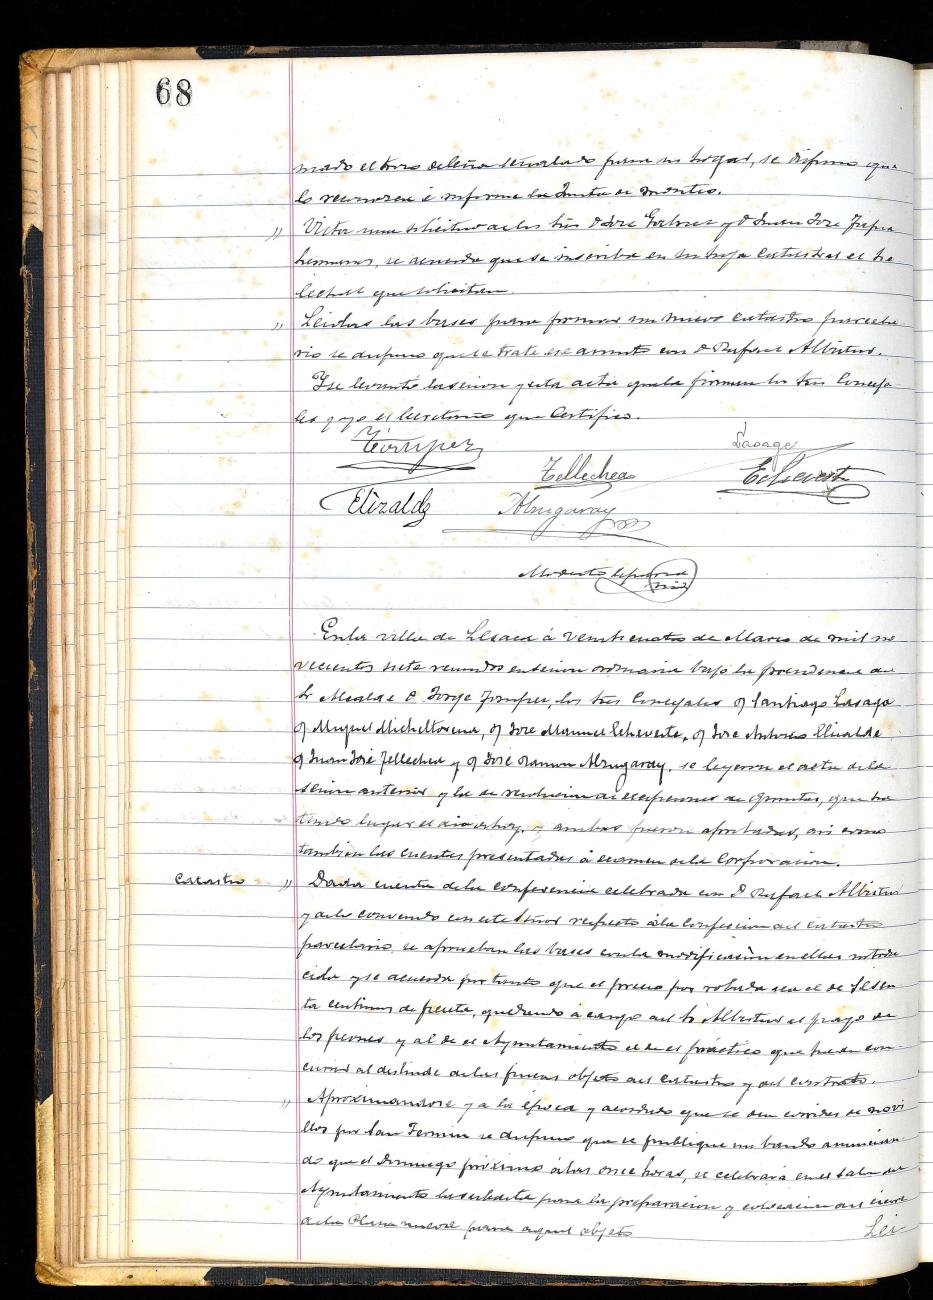 68
mado el trozo de leña señalado para su hogar, se dispuso que
lo reconozca é informe la Junta de montes.
" Vista una solicitud de los Srs D José Gabriel y D Juan José
hermanos, se acuerda que se inscriba en su hoja catastral el he
lechal que solicitan.
" Leidas las bases para formar un nuevo catastro parcela-
rio se dispuso que se trate ese asunto con D Rafael Albistur.
Y se levantó la sesion y esta acta que la firman los Srs Conceja-
les y yo el Secretario que Certifico.
Lasaga
Tellechea Echeverte
Elizalde Almgaray
Modesto
En la villa de Lesaca á veinticuatro de Marzo de mil no
vecientos siete reunidos en sesion ordinaria bajo la presidencia del
Sr Alcalde D. Jorge los Srs Concejales D Santiago Lasaga
D Miguel Micheltorena, D José Manuel Echeverte, D José Antonio Elizalde
D Juan José Tellechea y D José Ramon Almgaray, se leyeron el acta de la
sesion anterior y la de resolucion de excepciones de quintas, que ha
tenido lugar el dia de hoy, y ambas fueron aprobadas, asi como
tambien las cuentas presentadas á examen de la Corporacion.
Catastro " Dada cuenta de la conferencia celebrada con D Rafael Albistur
y de lo convenido con este Señor respecto á la confeccion del catastro
parcelario, se aprueban las bases con la modificacion en ellas introdu
cida y se acuerda por tanto que el precio por robada sea el de sesen
ta centimos de peseta, quedando á cargo del Sr Albistur el pago de
los peones y al de el Ayuntamiento el de el práctico que pueda con-
currir al deslinde de las fincas objeto del catastro y del contrato.
" Aproximandose ya la época y acordado que se den corridas de novi
llos por San Fermin se dispuso que se publique un bando anuncian
do que el Domingo próximo á las once horas, se celebrará en el Salon del
Ayuntamiento la subasta para la preparacion y colocacion del cierre
de la Plaza nueva para aquel objeto
Lei-